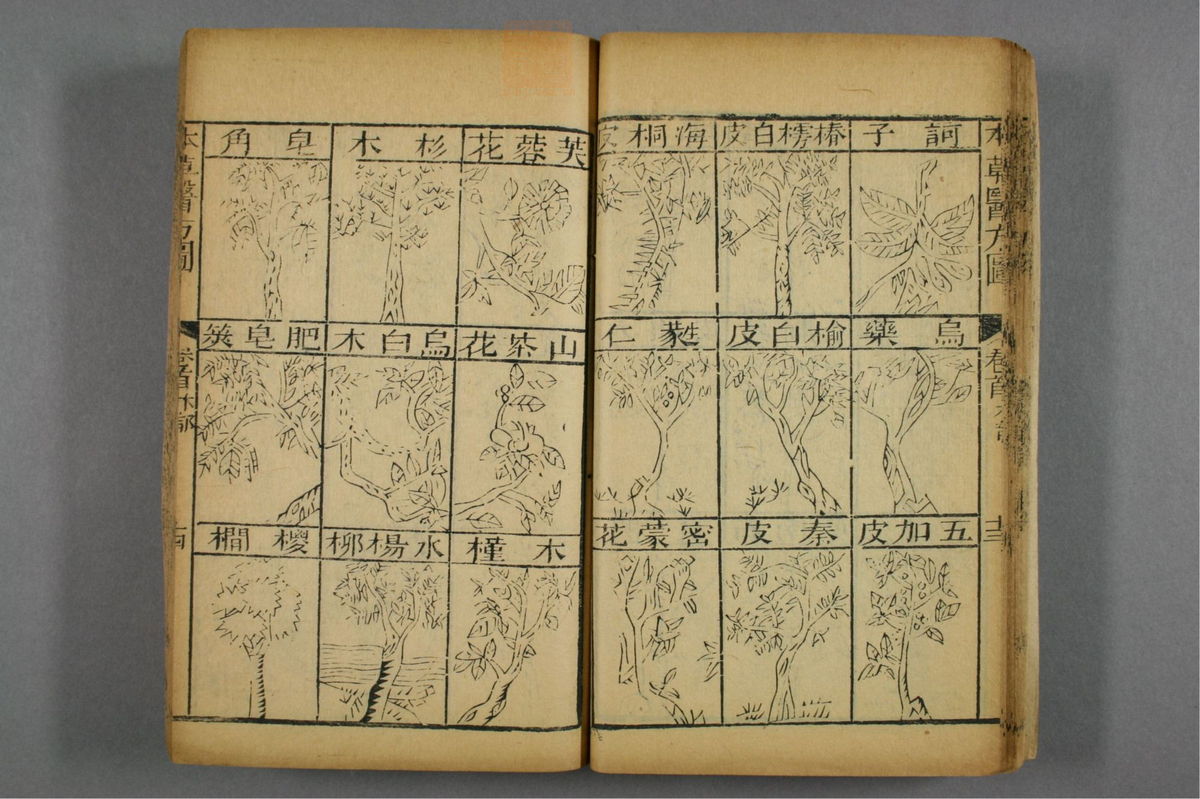 本草醫方圖
卷首木部
十三
訶子
椿樗白皮
海桐皮
烏藥
榆白皮
蕤仁
五加皮
秦皮
密蒙花
芙蓉花
杉木
皁角
山茶花
烏臼木
肥皁莢
木槿
水楊柳
椶櫚
本草醫方圖
卷首木部
十四